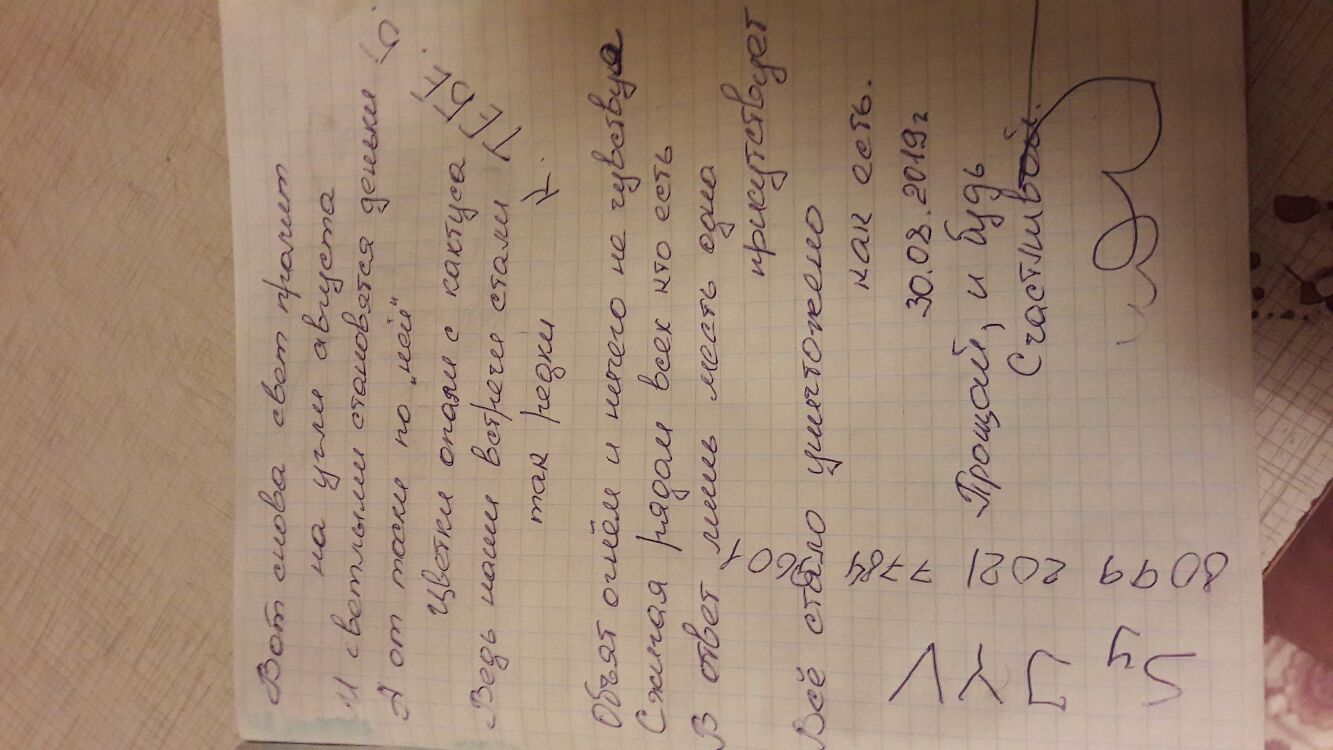 Вот снова свет пролит
на угли августа
И светлыми становятся деньки
А от тоски по „ней"
Цветки опали с кактуса
Ведь наши встречи стали
так редки
Объят огнём и ничего не чувствуя
Сжигая рядом всех кто есть
В ответ лишь месть одна
прикутствует
Всё стало уничтожено
как есть.
30.03.2019г
Прощай, и будь
Счастливой.
5601
7784
2021
8099